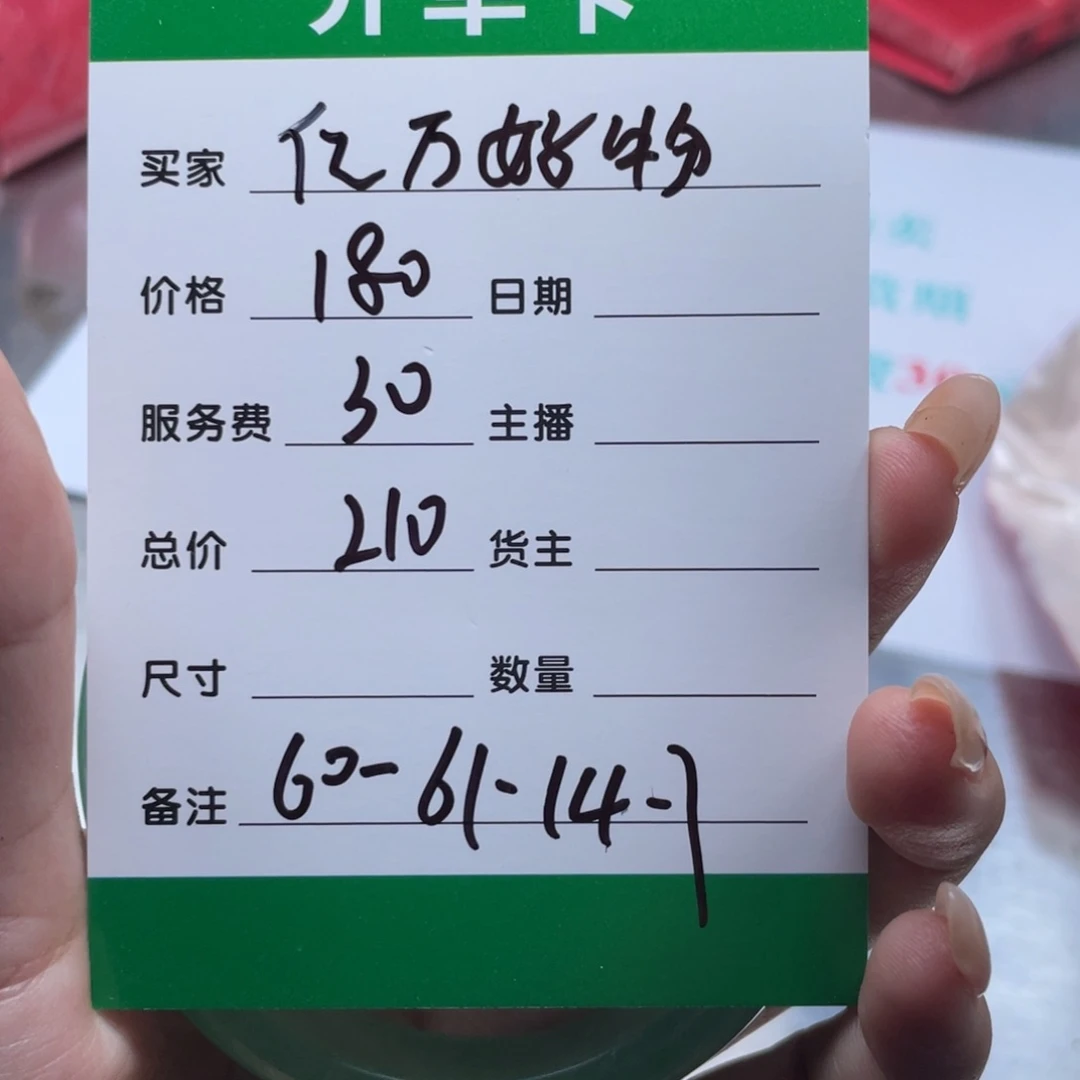 开单卡
买家 亿万好物
价格 180 日期
服务费 30 主播
总价 210 货主
尺寸 数量
备注 60-61-14-7